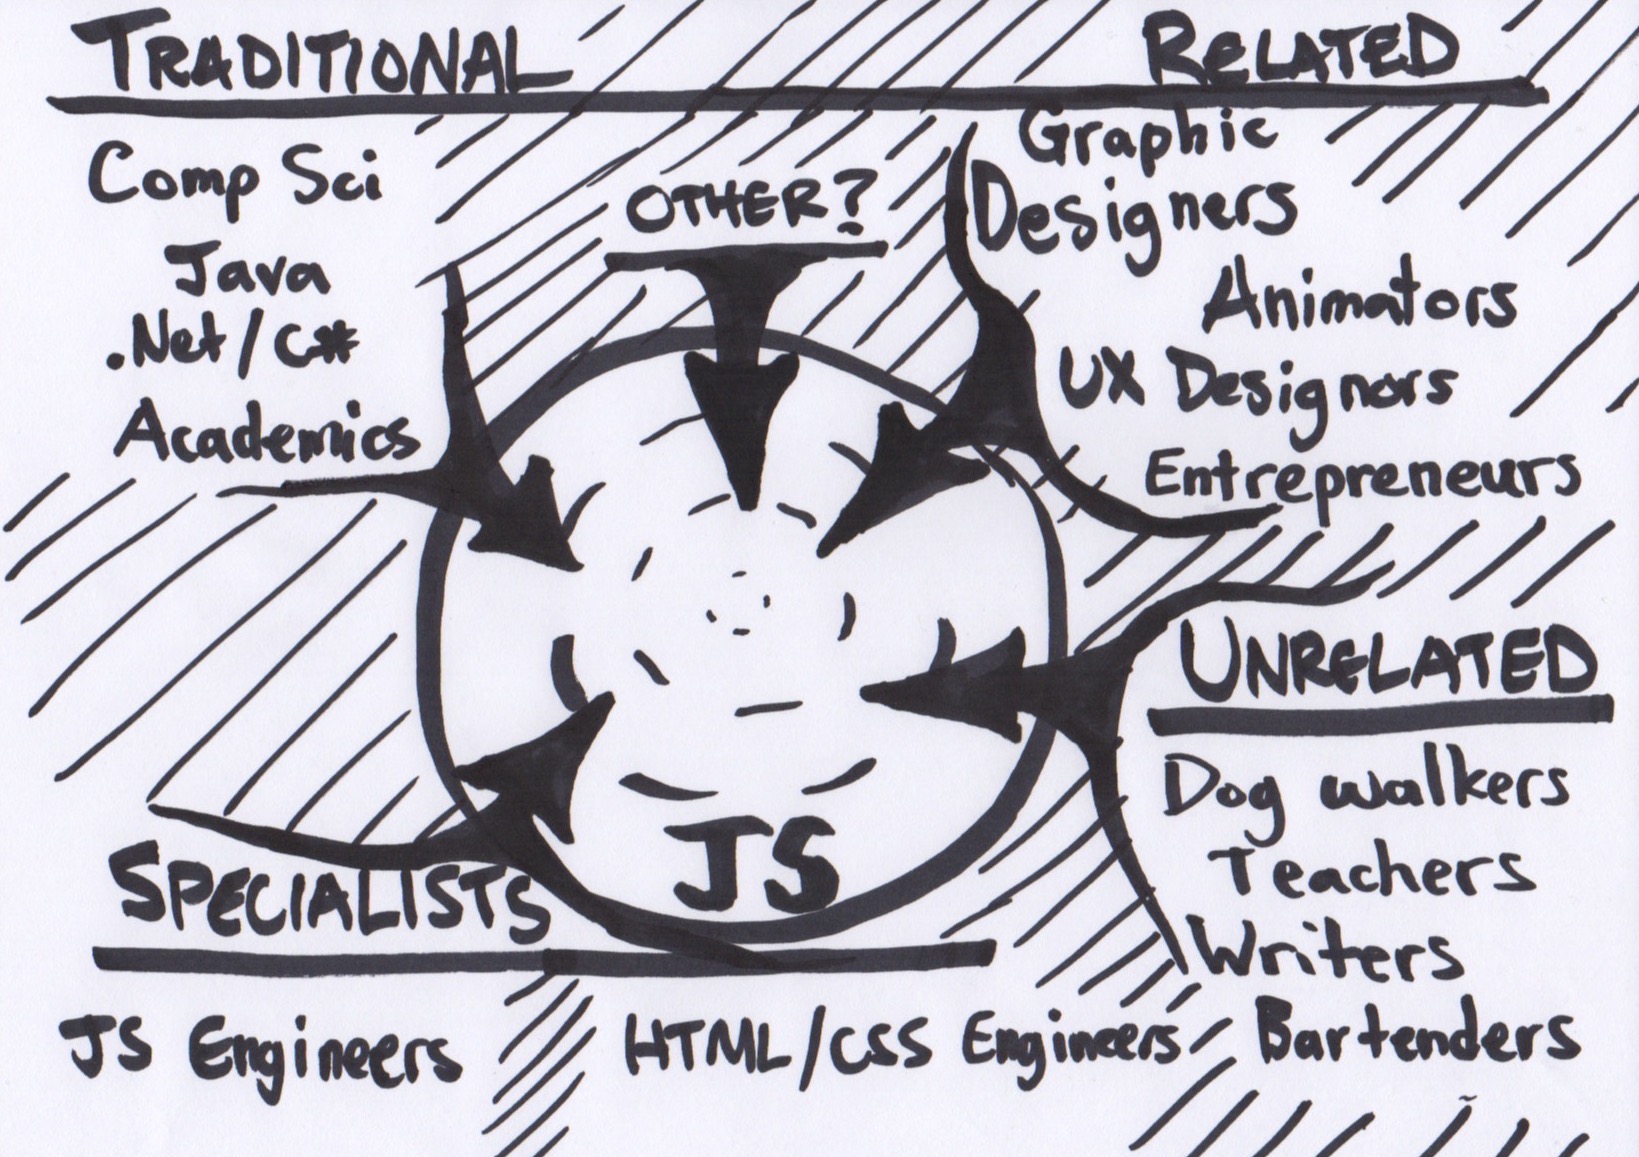 TRADITIONAL
Comp Sci
Java
.Net/C#
Academics
OTHER?
RELATED
Graphic
Designers
Animators
UX Designors
Entrepreneurs
UNRELATED
Dog walkers
Teachers
Writers
Bartenders
SPECIALISTS
JS Engineers
HTML/CSS Engineers
JS